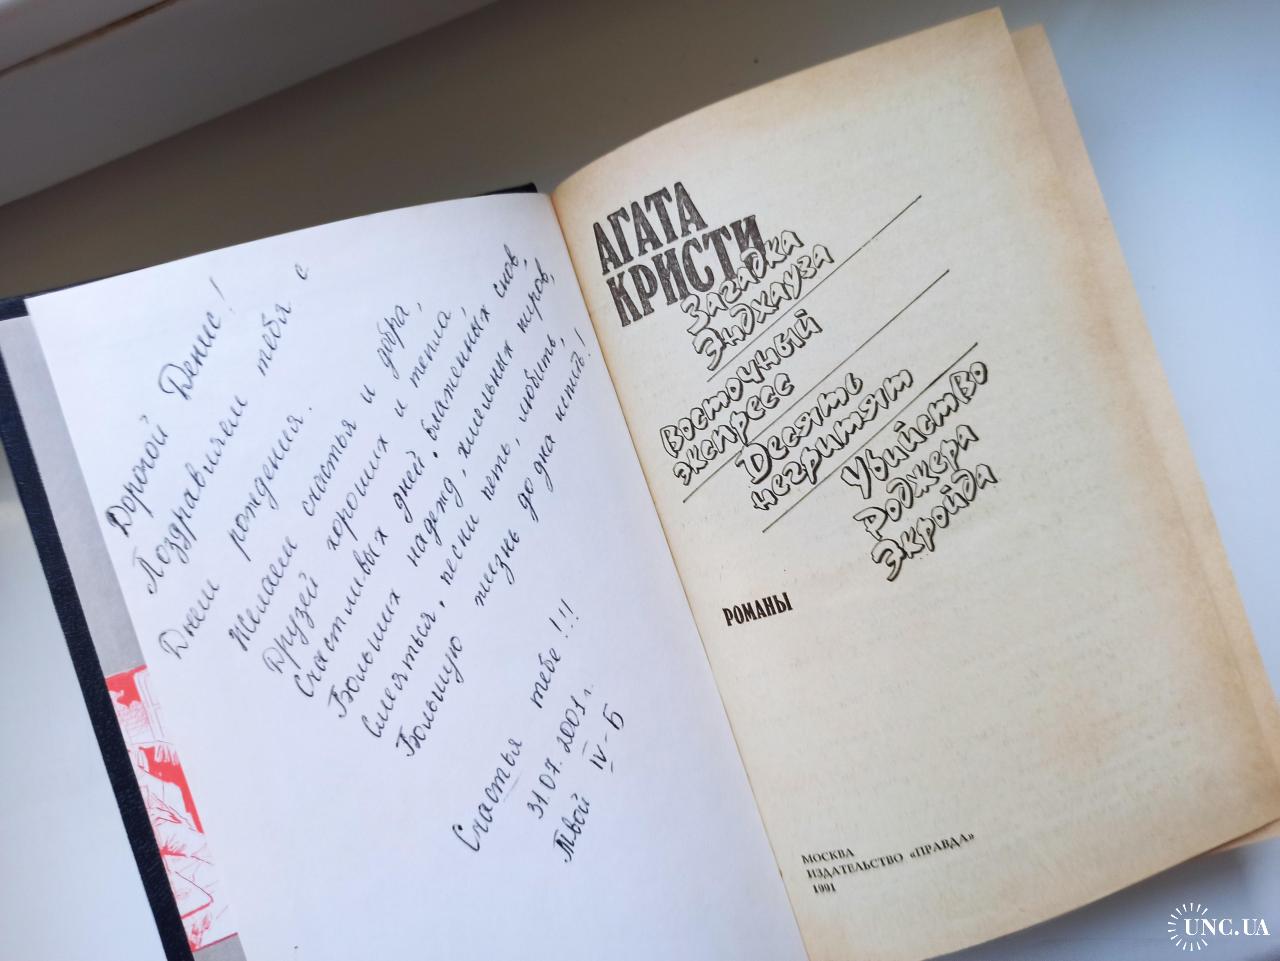 Дорогой Денис!
Поздравляем тебя с
Днем рождения.
Желаем счастья и добра,
Друзей хороших и тепла,
Счастливых дней, блаженных снов
Больших надежд, хмельных пиров,
Смеяться, песни петь, любить,
Большую жизнь до дна испить!
Счастья тебе!!!
31.07.2001 г.
Твой IV-Б
АГАТА
КРИСТИ
Загадка
Эндхауза
Восточный
экспресс
Десять
негритят
Убийство
Роджера
Экройда
РОМАНЫ
МОСКВА
ИЗДАТЕЛЬСТВО «ПРАВДА»
1991
UNC.UA